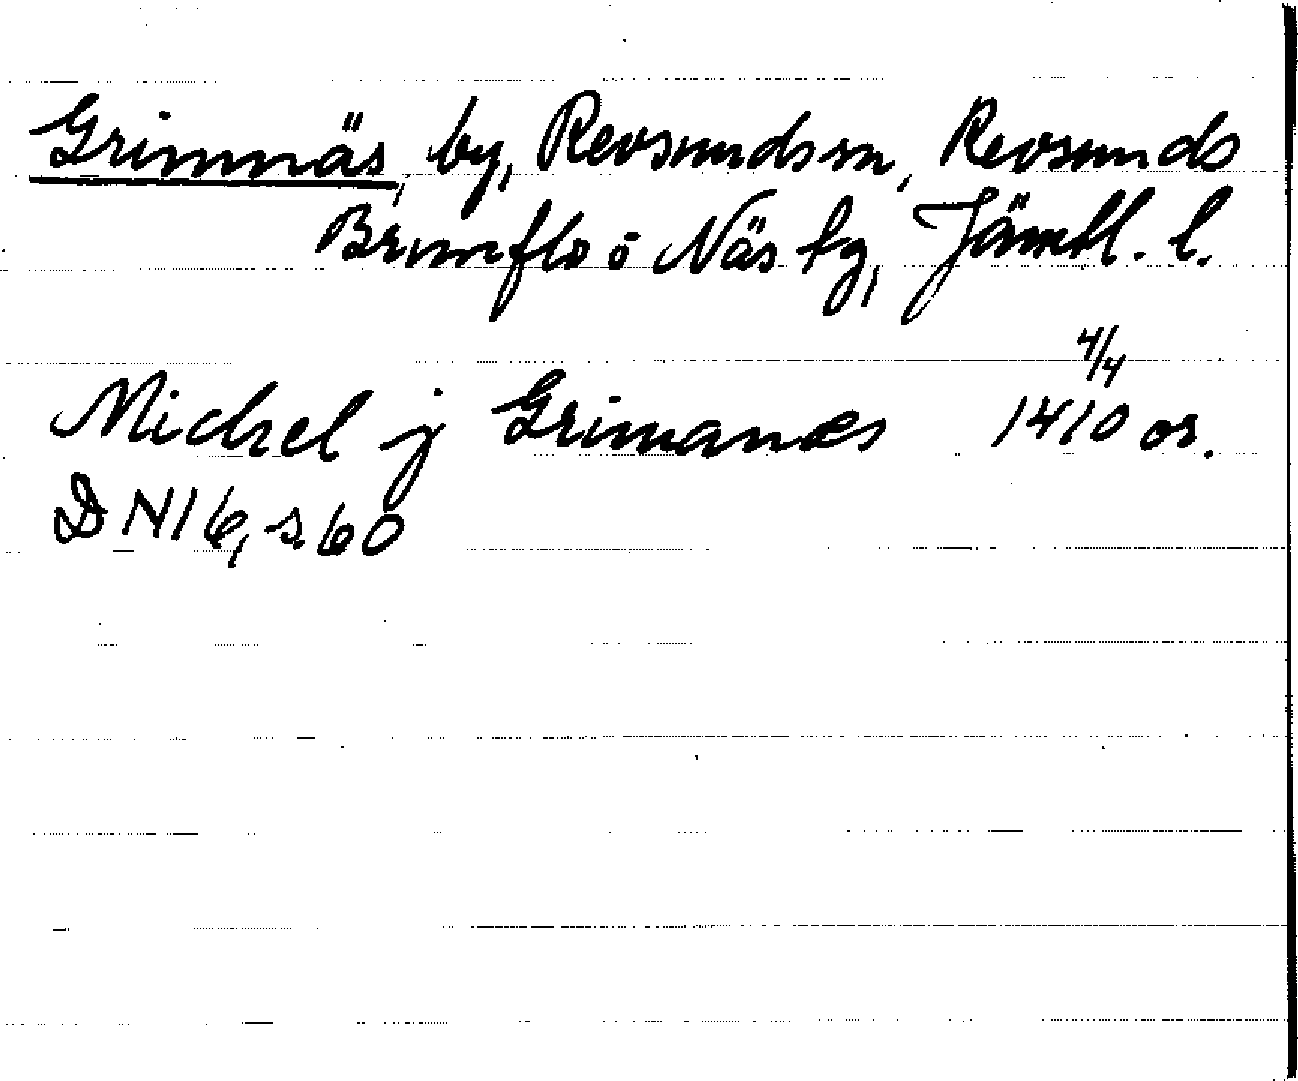 Grimnäs, by, Revsunds sn, Revsunds
Brunflo o Näs tg, Jämtl. l.
Michel j Grimanæs 1410 4/4 or.
DN16, s 60